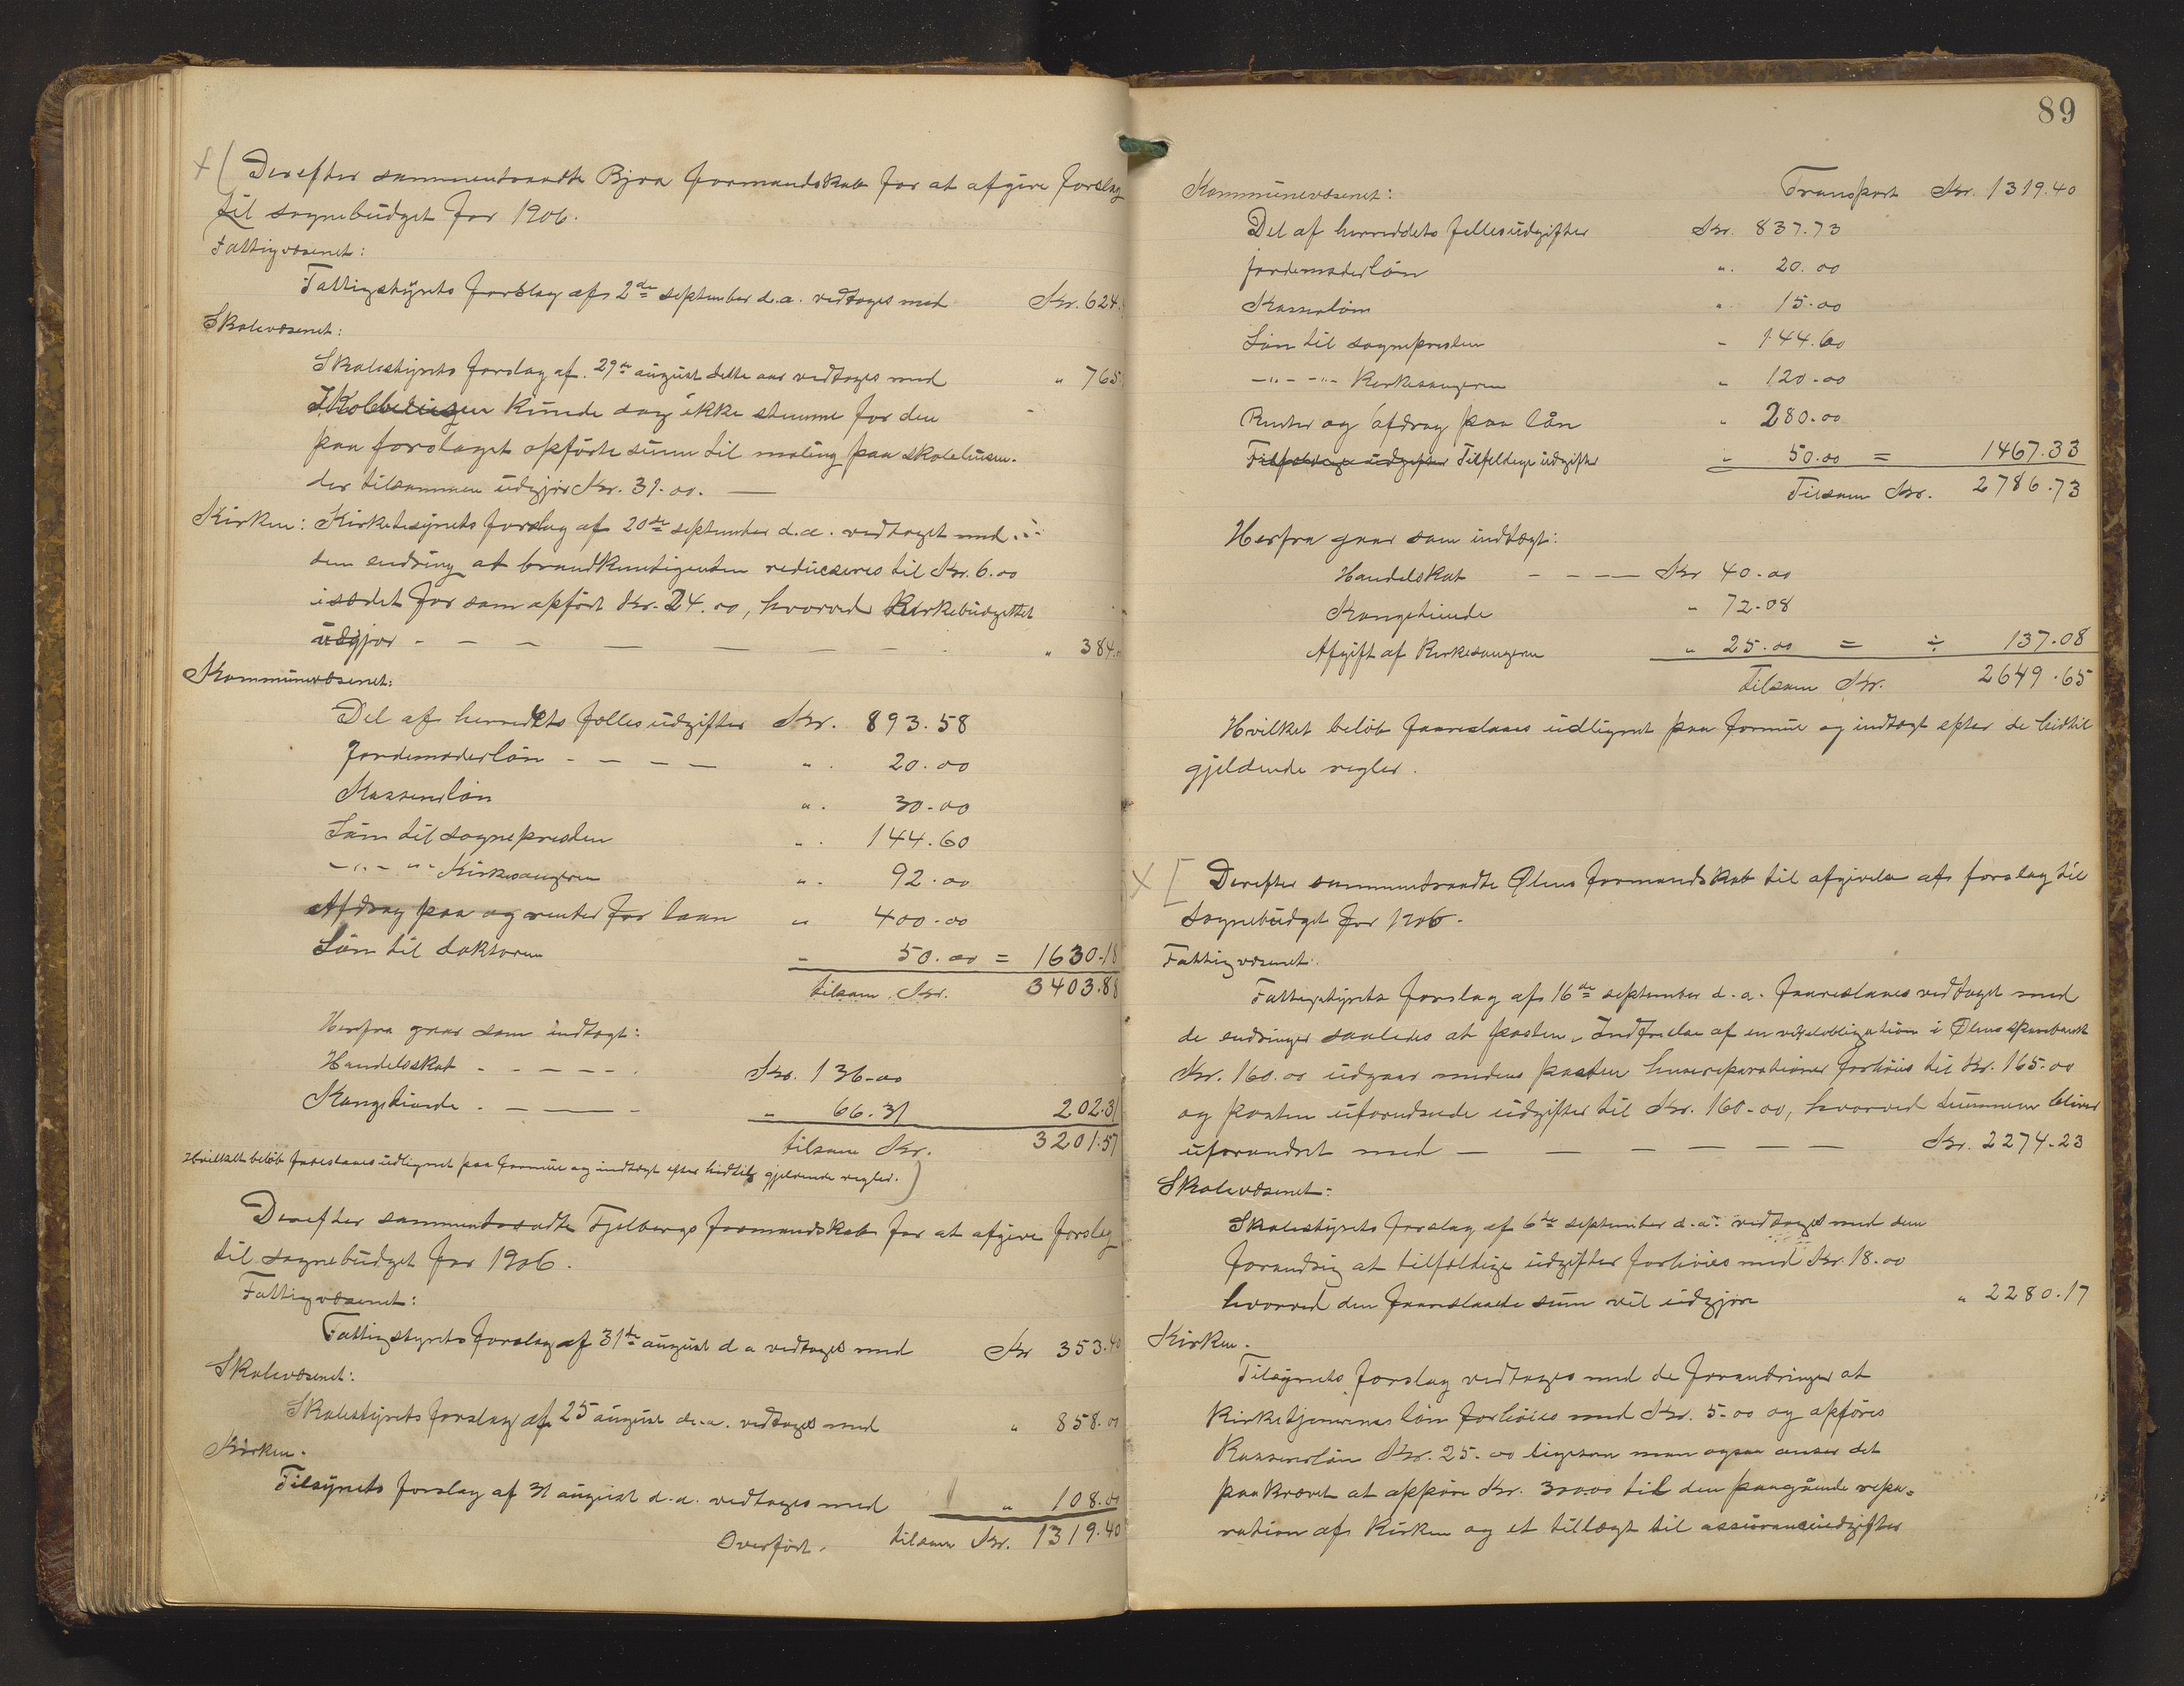 Derefter sammentraadte Bjoa formandskab for at afgive forslag
til sognebudget for 1906.
Fattigvæsenet:
Fattigstyrets forslag af 2de september d.a. vedtoges med Kr. 624.
Skolevæsenet:
Skolestyrets forslag af 29de august dette aar vedtoges med " 765
kunde dog ikke stemme for den
paa forslaget opførte sum til maling paa skolehusene
der tilsammen udgjør Kr. 31.00. —
Kirken: Kirketilsynets forslag af 20de september d.a. vedtaget med
den endring at brandkontigenten reduceres til Kr. 6.00
istedet for som opført Kr. 24.00, hvorved Kirkebudgettet
udgjør - - - — — — - - " 384.
Kommunevæsenet:
Del af herredets fællesudgifter Kr. 893.58
Jordemoderløn - - - — " 20.00
Kasserløn " 30.00
Løn til sognepresten " 144.60
—"— "" Kirkesangeren " 92.00
Afdrag paa og renter for laan " 400.00
Løn til doktoren " 50.00 = 1630.18
tilsam. Kr. 3403.88
Herfra gaar som indtægt:
Handelsskat - - - - - Kr. 136.00
Kongetiende - - — - " 66.31 202.31
tilsam Kr. 3201.57
Hvilket beløb foreslaaes udlignet paa formue og indtægt efter hidtil gjeldende regler.)
Derefter sammentraadte Fjelbergs formandskab for at afgive forslag
til sognebudget for 1906.
Fattigvæsenet:
Fattigstyrets forslag af 31te august d a vedtoges med Kr 353.40
Skolevæsenet:
Skolestyrets forslag af 25 august d.a. vedtoges med " 858.00
Kirken.
Tilsynets forslag af 31 august d.a. vedtoges med " 108.00
Overført. tilsam Kr. 1319.40
89
Kommunevæsenet: Transport Kr. 1319.40
Del af herreddets fellesudgifter Kr. 837.73
jordemoderløn " 20.00
Kasserløn " 15.00
Løn til sognepresten - 144.60
—"— —"— Kirkesangeren " 120.00
Renter og afdrag paa lån " 280.00
Tilfeldige udgifter Tilfeldige udgifter " 50.00 = 1467.33
Tilsam Kr. 2786.73
Herfra gaar som indtægt:
Handelskat - - - — Kr 40.00
Kongetiende " 72.08
Afgift af Kirkesangeren " 25.00 = ÷ 137.08
tilsam Kr. 2649.65
Hvilket beløb foareslaaes udlignet paa formue og indtægt efter de hidtil
gjeldende regler.
Derefter sammentraadte Ølens formandskab til afgivelse af forslag til
sognebudget for 1906.
Fattigvæsenet.
Fattigstyrets forslag af 16de september d.a. foareslaaes vedtaget med
de endringer saaledes at posten " Indfrielse af en vexelobligation i Ølens sparebank
Kr. 160.00 udgaar medens posten husereparationer forhøies til Kr. 165.00
og posten uforudseede udgifter til Kr. 160.00, hvorved summen bliver
uforandret med — — — — — — Kr. 2274.23
Skolevæsenet:
Skolestyrets forslag af 6te september d.a. vedtaget med den
forandrig at tilfældige udgifter forhøies med Kr. 18.00
hvorved den foareslaaede sum vil udgjøre " 2280.17
Kirken.
Tilsynets forslag vedtoges med de forandringer at
kirketjenerens løn forhøies med Kr. 5.00 og opføres
Kasserløn Kr. 25.00 ligesom man ogsaa anser det
paakrævet at opføre Kr. 300.00 til den paagåande repa=
ration af Kirken og et tillægt til assuranceudgifter